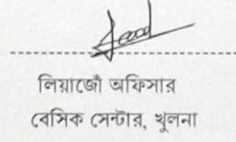 লিয়াজোঁ অফিসার
বেসিক সেন্টার, খুলনা